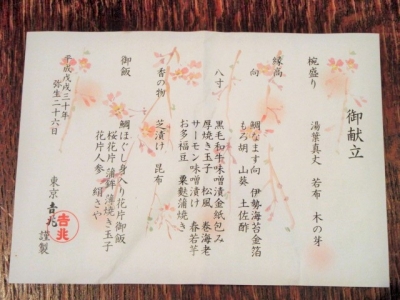 御献立
椀盛り　湯葉真丈　若布　木の芽
縁高
向　鯛なます向　伊勢海苔金箔
もろ胡　山葵　土佐酢
八寸　黒毛和牛味噌漬金紙包み
厚焼き玉子　松風　巻海老
サーモン味噌漬け　春若芋
お多福豆　粟麩蒲焼き
香の物　芝漬け　昆布
御飯　鯛ほぐし身入り花片御飯
桜花片　蒲鉾　薄焼き玉子
花片人参　絹さや
平成戊戌三十年
弥生二十六日
東京𠮷兆　謹製
𠮷兆